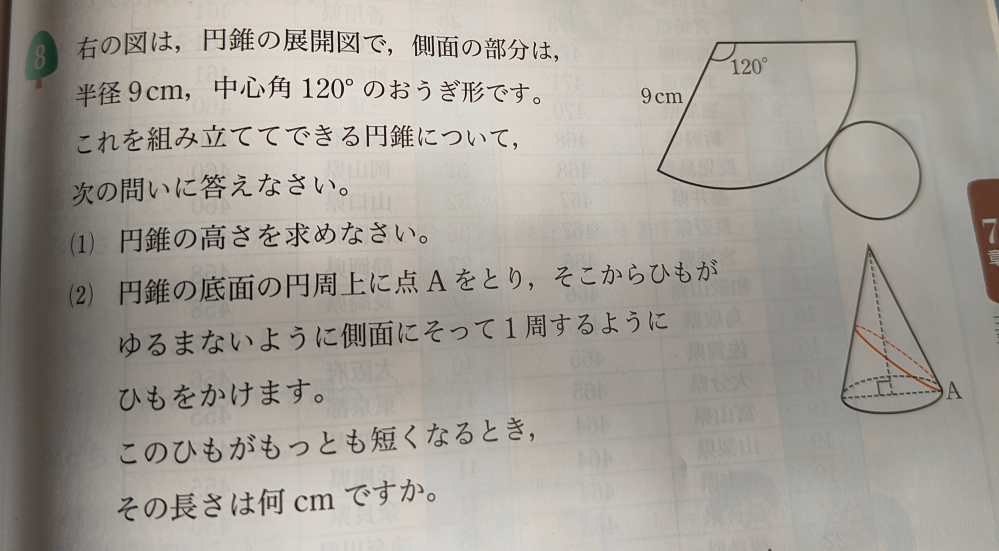 8
右の図は,円錐の展開図で,側面の部分は,
半径9cm,中心角120°のおうぎ形です。
これを組み立ててできる円錐について,
次の問いに答えなさい。
(1) 円錐の高さを求めなさい。
(2) 円錐の底面の円周上に点Aをとり,そこからひもが
ゆるまないように側面にそって1周するように
ひもをかけます。
このひもがもっとも短くなるとき,
その長さは何cmですか。
120°
9cm
A
7
章